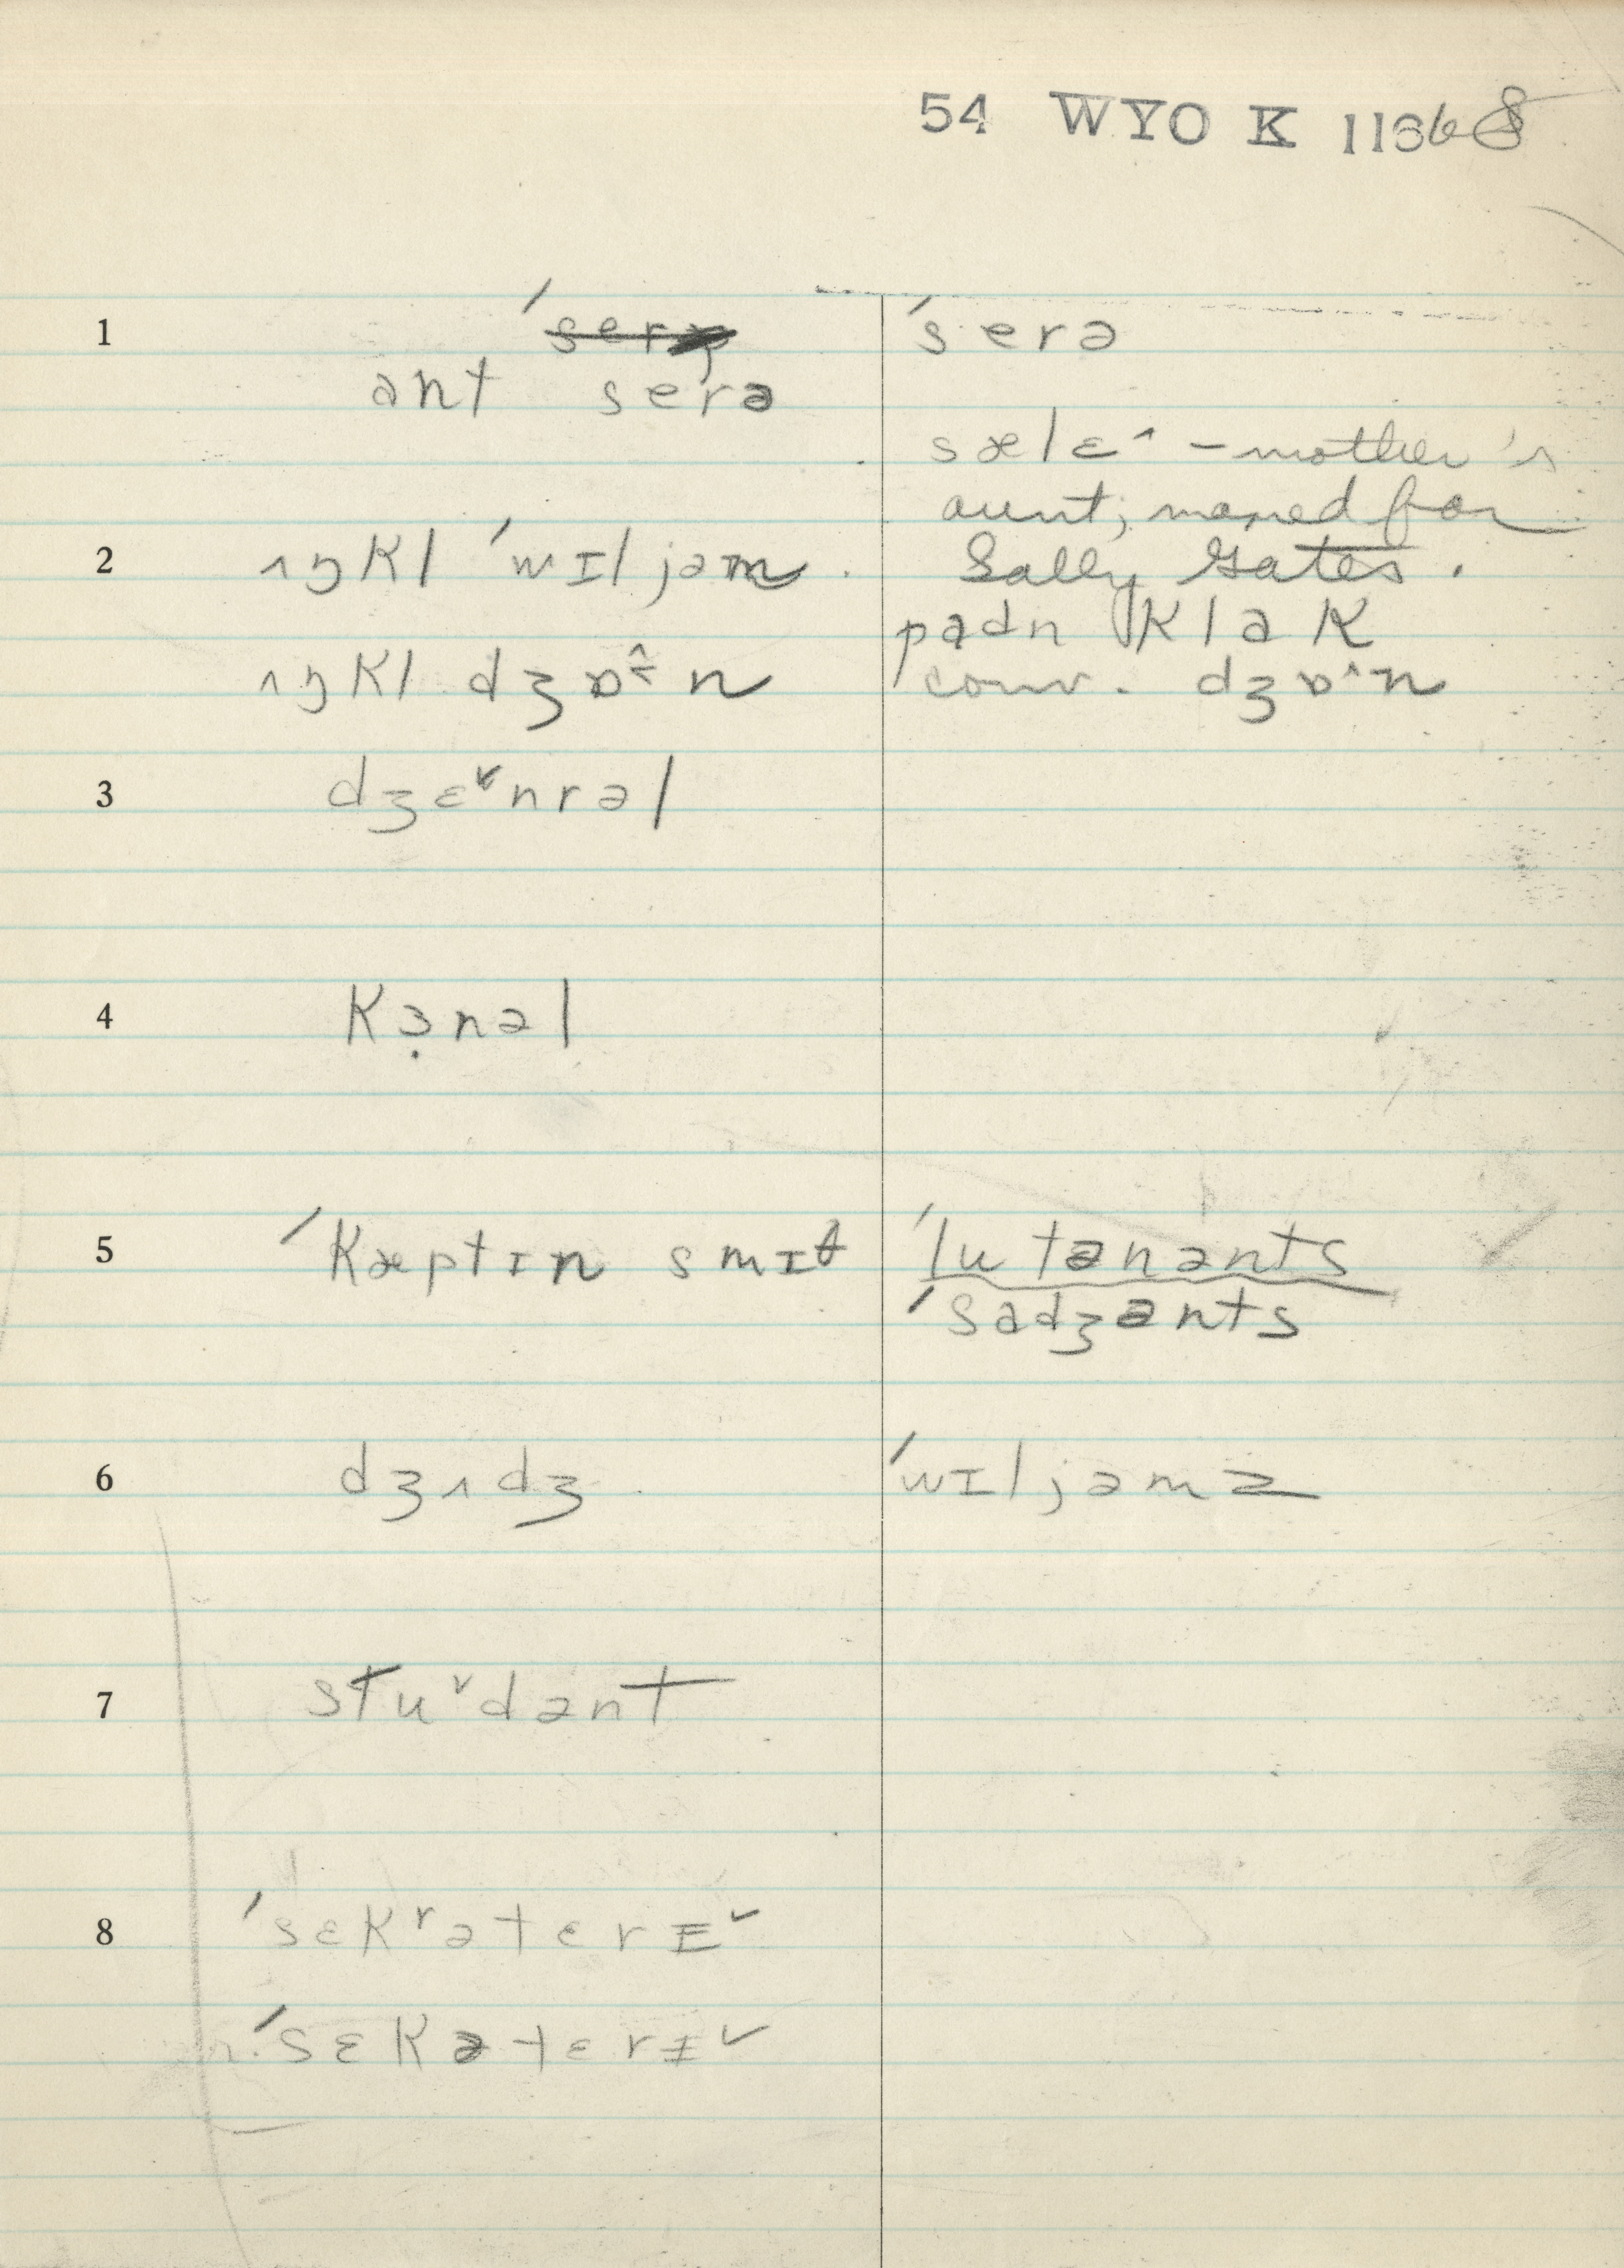 54 WYO K 1168
1 ˈserə ˈserə
ant serə
sælɛ^ – mother's
aunt; named for
2 ʌŋkl ˈwɪljəm. Sally Gates.
padn klak
ʌŋkl dʒɒ^n conv. dʒɒ^n
3 dʒɛ˅nrəl
4 kɜ̣nəl
5 ˈkæptɪn smɪθ ˈlutənənts
ˈsadʒənts
6 dʒʌdʒ. ˈwɪljəmz
7 stu˅dənt
8 ˈsɛkʳətɛrɪ˅
ˈsɛkətɛrɪ˅